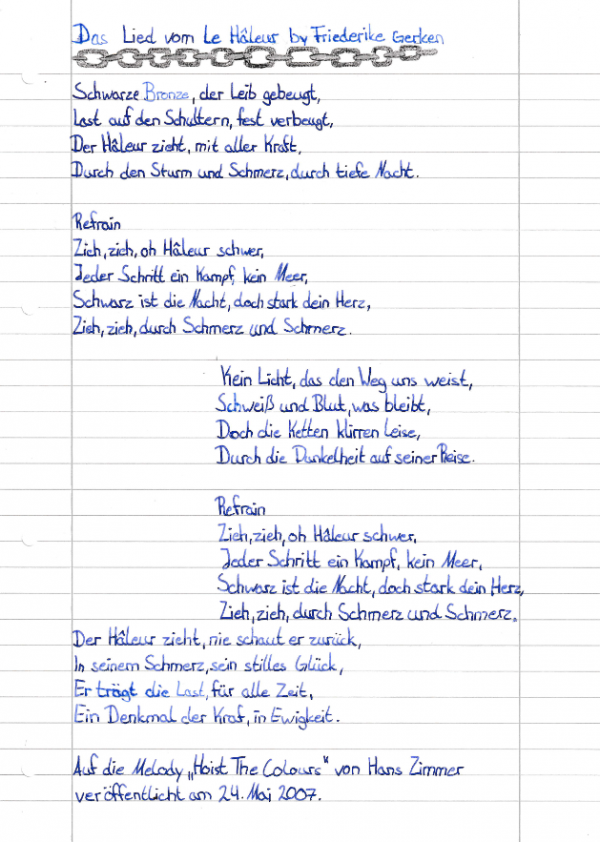 Das Lied vom Le Hâleur by Friederike Gerken
Schwarze Bronze, der Leib gebeugt,
Last auf den Schultern, fest verbeugt,
Der Hâleur zieht, mit aller Kraft,
Durch den Sturm und Schmerz, durch tiefe Nacht.
Refrain
Zieh, zieh, oh Hâleur schwer,
Jeder Schritt ein Kampf, kein Meer,
Schwarz ist die Nacht, doch stark dein Herz,
Zieh, zieh, durch Schmerz und Schmerz.
Kein Licht, das den Weg uns weist,
Schweiß und Blut, was bleibt,
Doch die Ketten klirren Leise,
Durch die Dunkelheit auf seiner Reise.
Refrain
Zieh, zieh, oh Hâleur schwer,
Jeder Schritt ein Kampf, kein Meer,
Schwarz ist die Nacht, doch stark dein Herz,
Zieh, zieh, durch Schmerz und Schmerz.
Der Hâleur zieht, nie schaut er zurück,
In seinem Schmerz, sein stilles Glück,
Er trägt die Last, für alle Zeit,
Ein Denkmal der Kraf, in Ewigkeit.
Auf die Melody „Hoist The Colours" von Hans Zimmer
veröffentlicht am 24. Mai 2007.